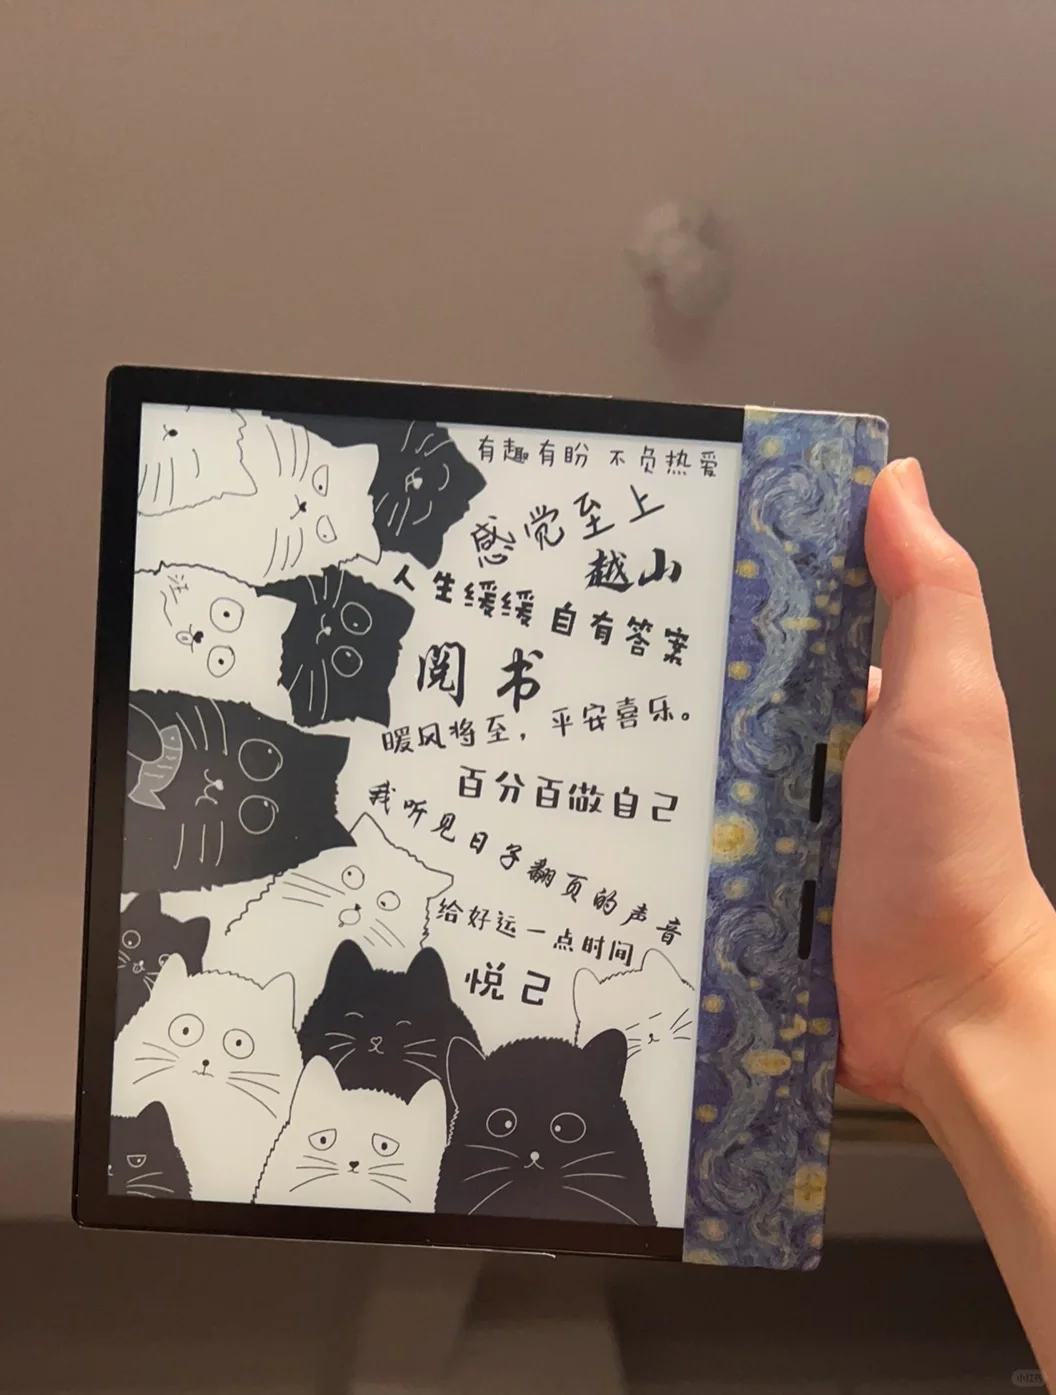 有趣有盼 不负热爱
感觉至上
越山
人生缓缓 自有答案
阅书
暖风将至，平安喜乐。
百分百做自己
我听见日子翻页的声音
给好运一点时间
悦己
小红书